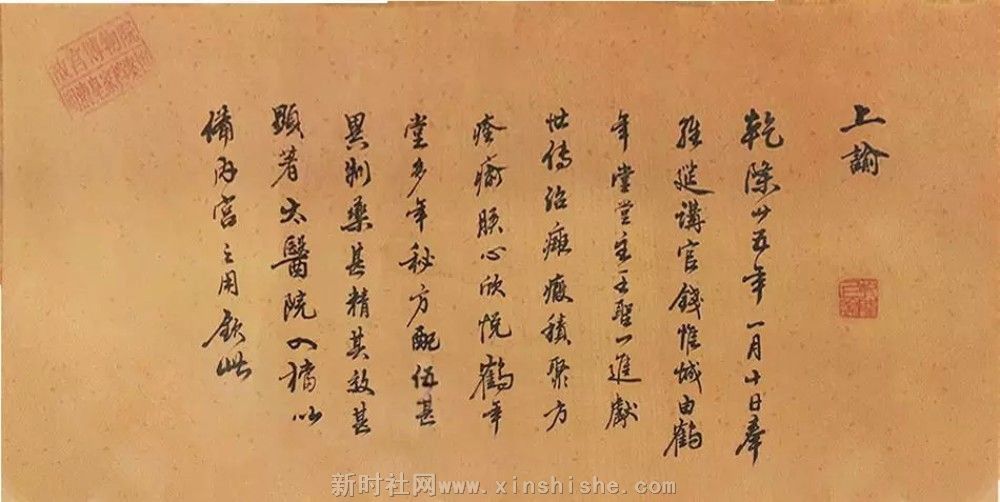 上諭
乾隆廿五年一月十日奉
經筵講官錢惟城由鶴
年堂堂主王聖一進獻
世傳治癥瘕積聚方
痊癒朕心欣悅鶴年
堂多年秘方配伍甚
異制藥甚精其效甚
顯著太醫院入檔以
備內宮之用欽此
故宮博物院
新时社网www.xinshishe.com